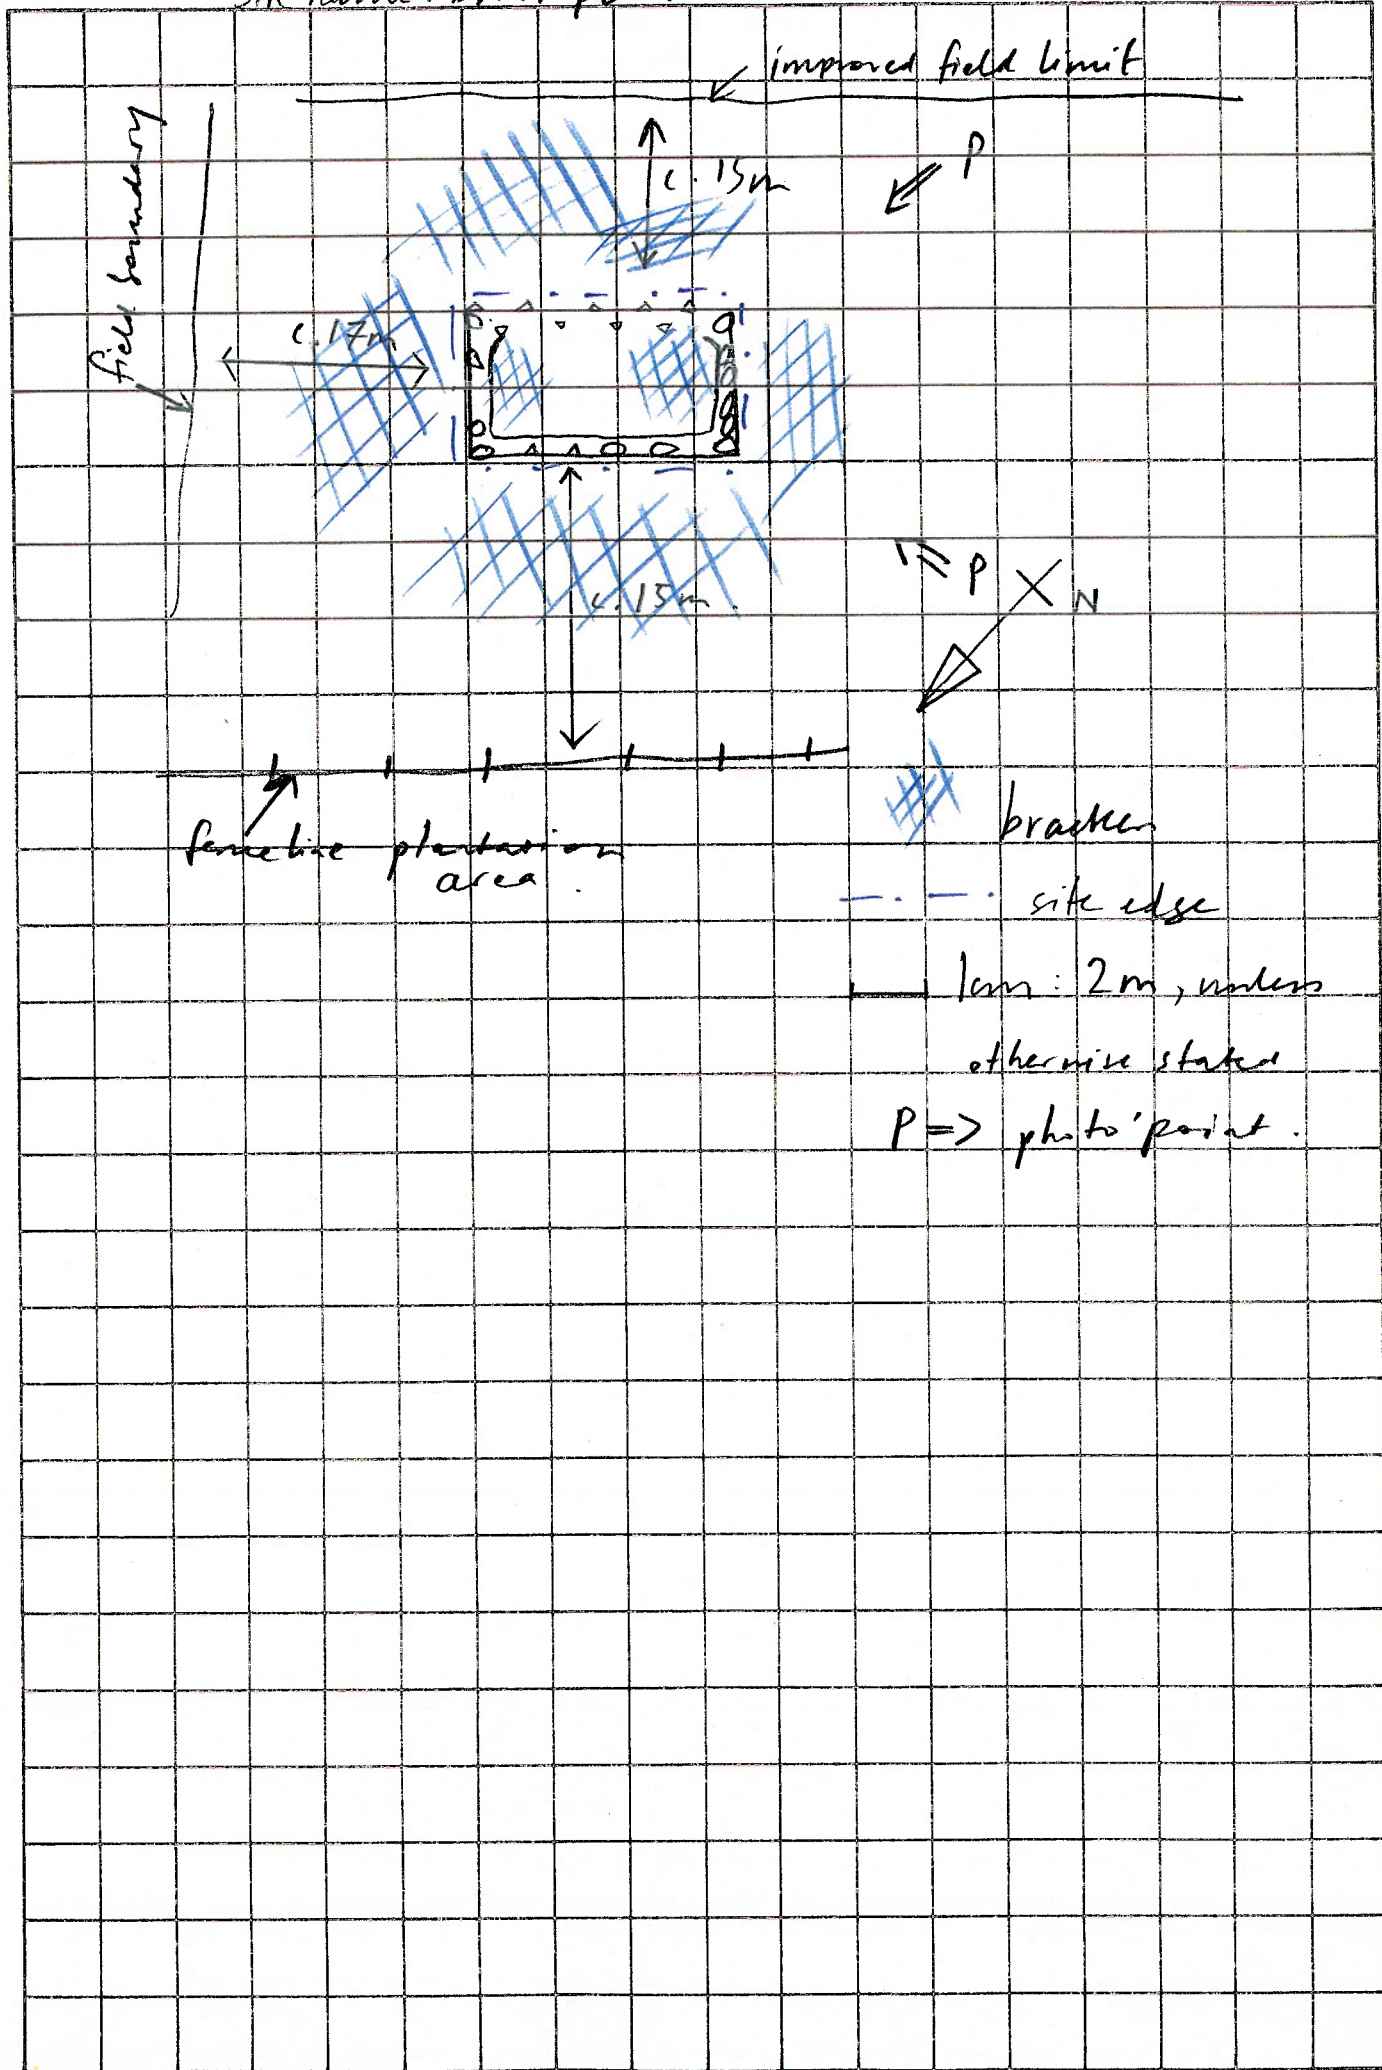 site name:
improved field limit
P
c. 15m
field boundary
c. 17m
P
N
c. 15m.
fenceline plantation
area.
bracken
site edge
1cm : 2m, unless
otherwise stated
P => photo point.